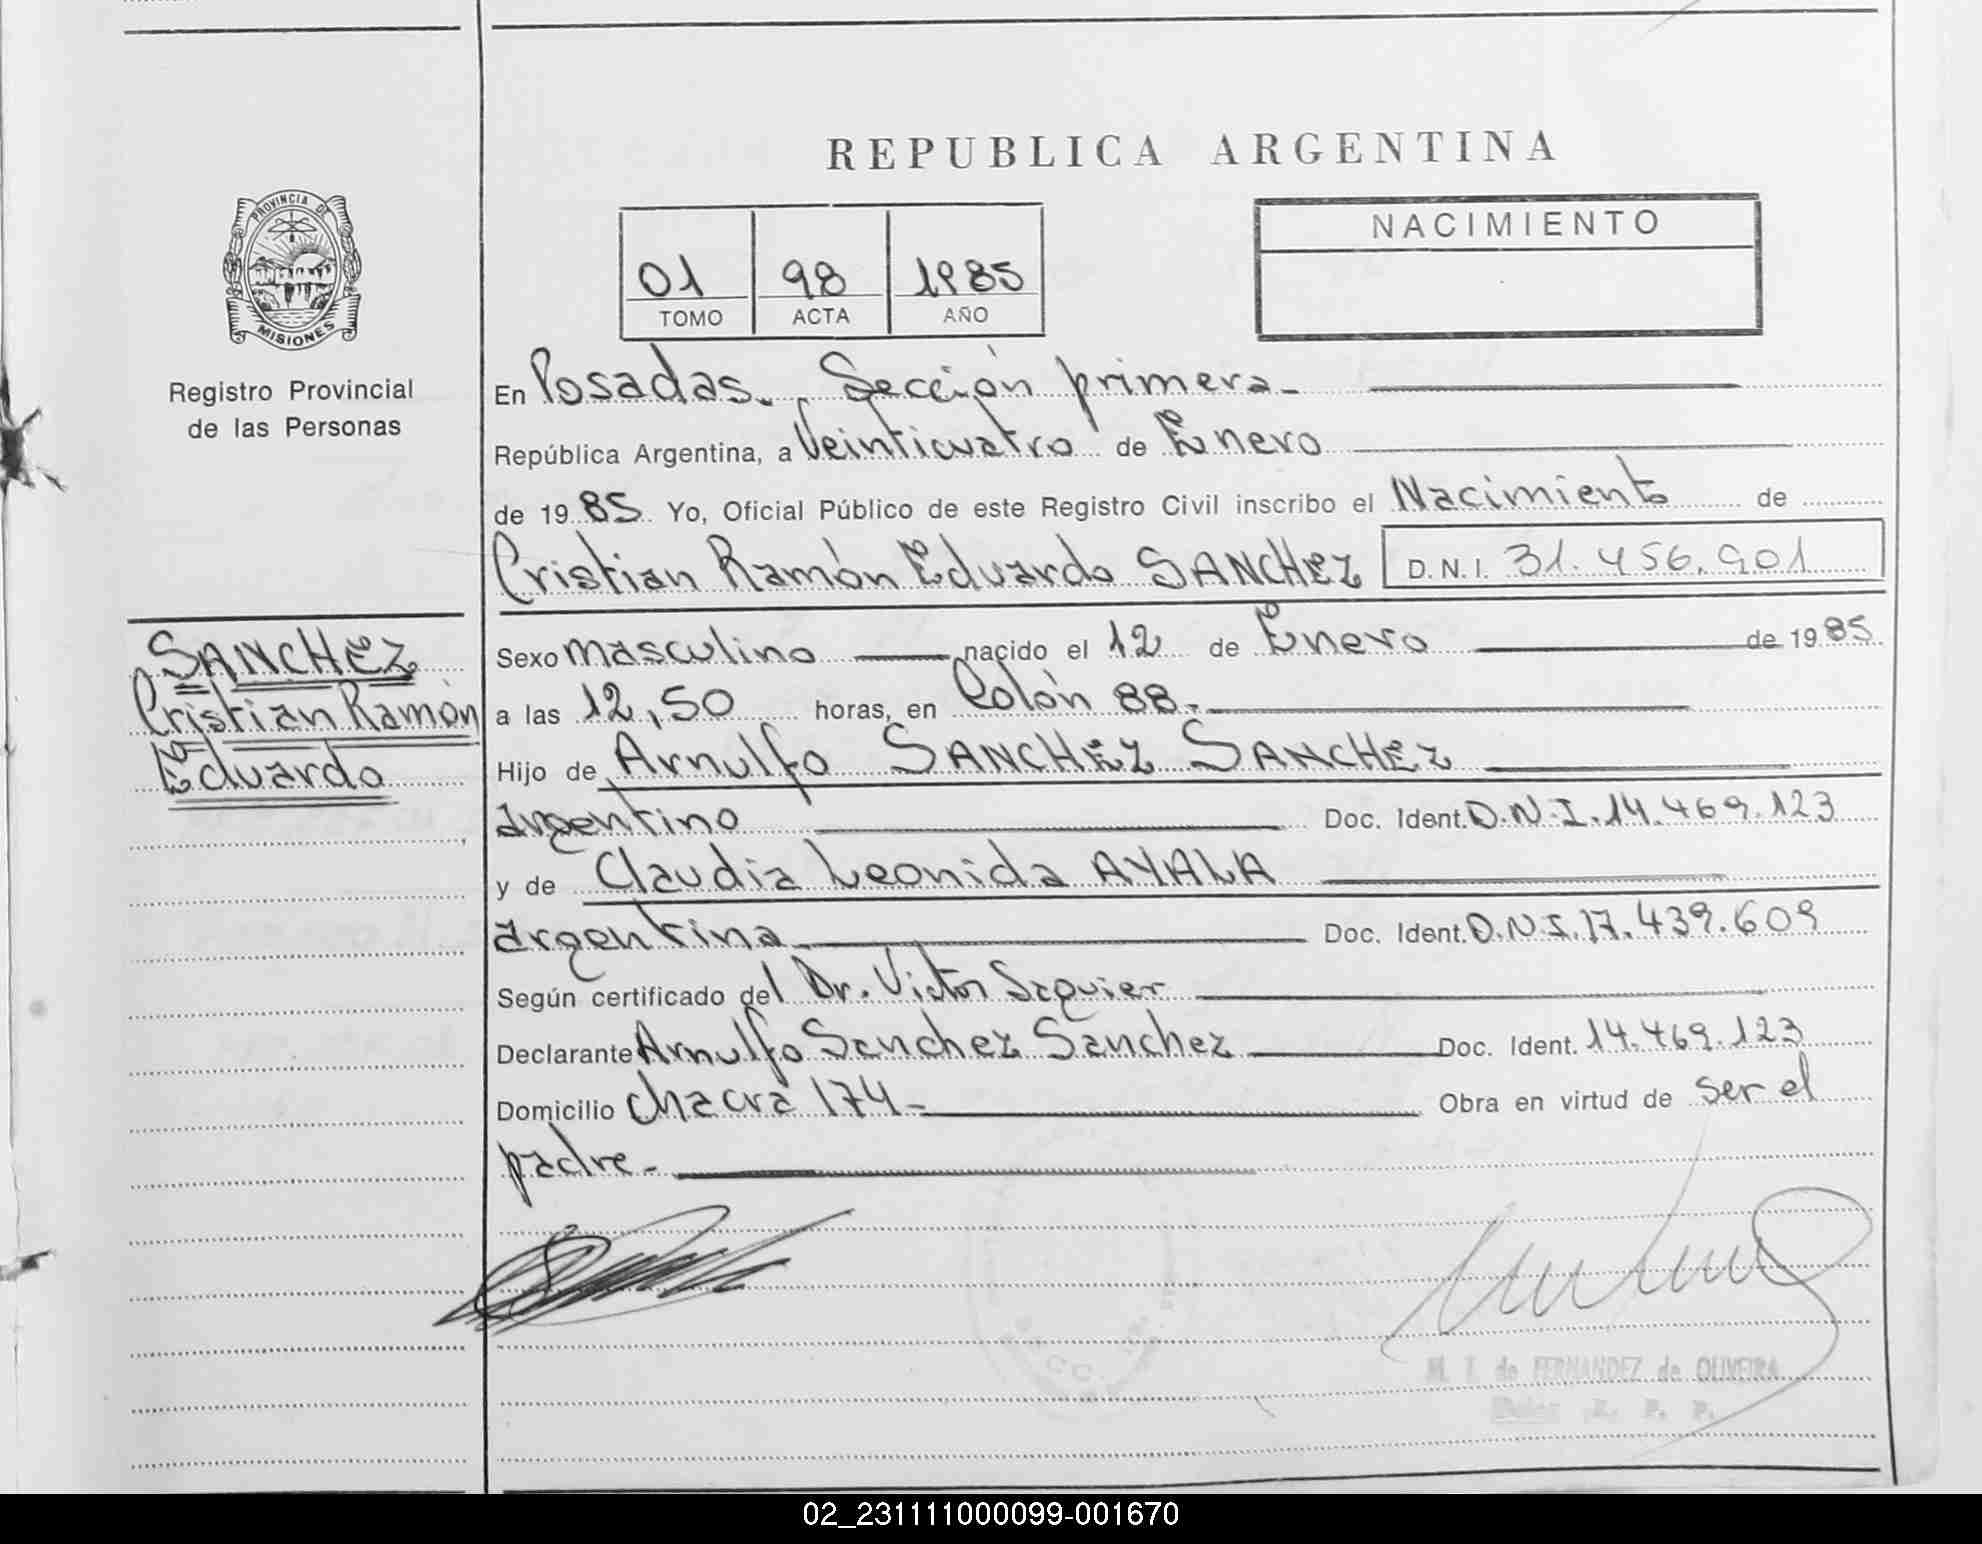 REPUBLICA ARGENTINA
PROVINCIA DE
MISIONES
Registro Provincial
de las Personas
01 98 1985
TOMO ACTA AÑO
NACIMIENTO
En Posadas. Sección primera-
República Argentina, a Veinticuatro de Enero
de 1985 Yo, Oficial Público de este Registro Civil inscribo el Nacimiento de
Cristian Ramón Eduardo SANCHEZ D.N.I. 31.456.901
SANCHEZ
Cristian Ramón
Eduardo
Sexo masculino nacido el 12 de Enero de 1985
a las 12,50 horas, en Colón 88.
Hijo de Arnulfo SANCHEZ SANCHEZ
argentino Doc. Ident. D.N.I. 14.469.123
y de Claudia Leonida AYALA
argentina Doc. Ident. D.N.I. 17.439.609
Según certificado del Dr. Victor Seguier
Declarante Arnulfo Sanchez Sanchez Doc. Ident. 14.469.123
Domicilio chacra 174- Obra en virtud de ser el
padre-
M. I. de FERNANDEZ de OLIVEIRA
R. P. P.
02_231111000099-001670